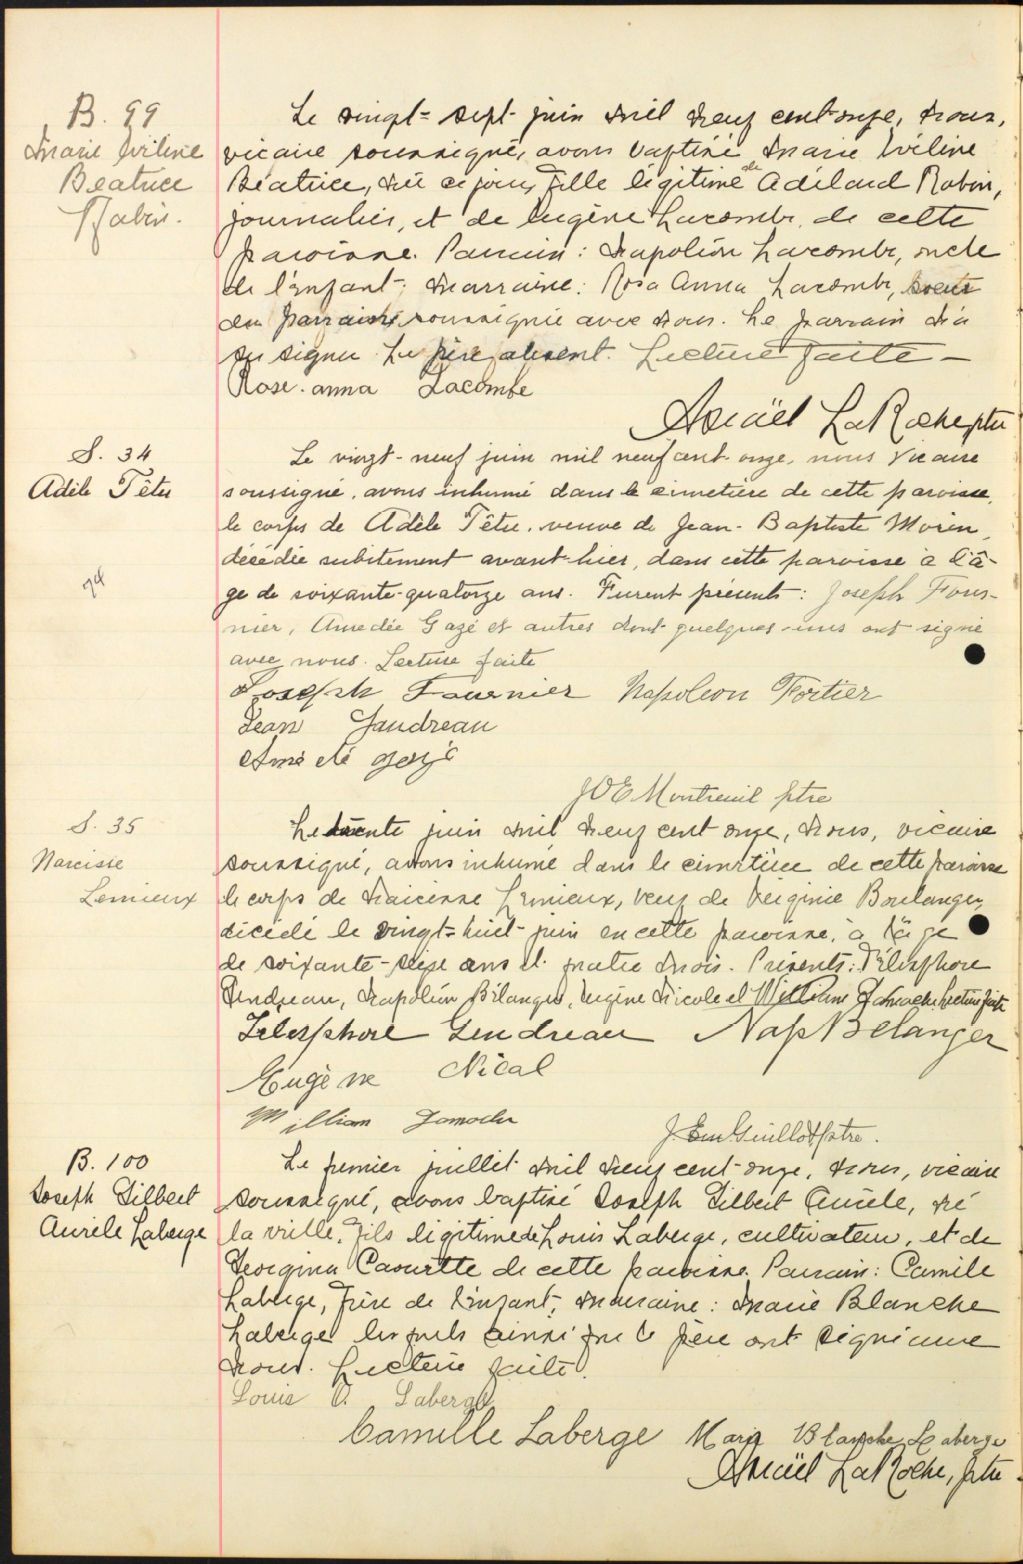 B. 99
Marie Eveline
Béatrice
Robin.
Le vingt-sept juin mil neuf cent onze, nous,
vicaire soussigné, avons baptisé Marie Eveline
Béatrice, née ce jour, fille légitime de Adélard Robin,
journalier, et de Eugénie Lacombe, de cette
paroisse. Parrain: Napoléon Lacombe, oncle
de l'enfant; Marraine: Rosa Anna Lacombe, soeur
du parrain soussignée avec nous. Le parrain n'a
su signer. Le père absent. Lecture faite —
Rose-anna Lacombe
LaRoche ptre
S. 34
Adèle Têtu
Le vingt-neuf juin mil neuf cent onze, nous vicaire
soussigné, avons inhumé dans le cimetière de cette paroisse,
le corps de Adèle Têtu, veuve de Jean-Baptiste Morin,
décédée subitement avant-hier, dans cette paroisse à l'â-
ge de soixante-quatorze ans. Furent présents: Joseph Four-
nier, Amedée Gazé et autres dont quelques-uns ont signé
avec nous. Lecture faite
Joseph Fournier Napoleon Fortier
Jean Gaudreau
Amedé
JOE Montreuil ptre
S. 35
Narcisse
Lemieux
Le trente juin mil neuf cent onze, nous, vicaire
soussigné, avons inhumé dans le cimetière de cette paroisse
le corps de Narcisse Lemieux, veuf de Virginie Boulanger,
décédé le vingt-huit juin en cette paroisse, à l'âge
de soixante-seize ans et quatre mois. Présents: Télesphore
Gendreau, Napoléon Bélanger, Eugène Nicole et William Gamache. Lecture faite
Telesphore Gendreau Nap Belanger
Eugène Nicol
William Gamache
J. Em Guillot ptre.
B. 100
Joseph Gilbert
Aurèle Laberge
Le premier juillet mil neuf cent onze, nous, vicaire
soussigné, avons baptisé Joseph Gilbert Aurèle, né
la veille, fils légitime de Louis Laberge, cultivateur, et de
Georgina Caouette de cette paroisse. Parrain: Camile
Laberge, frère de l'enfant, marraine: Marie Blanche
Laberge lesquels ainsi que le père ont signé avec
nous. Lecture faite.
Louis O. Laberge
Camille Laberge Marie Blanche Laberge
LaRoche, ptre.